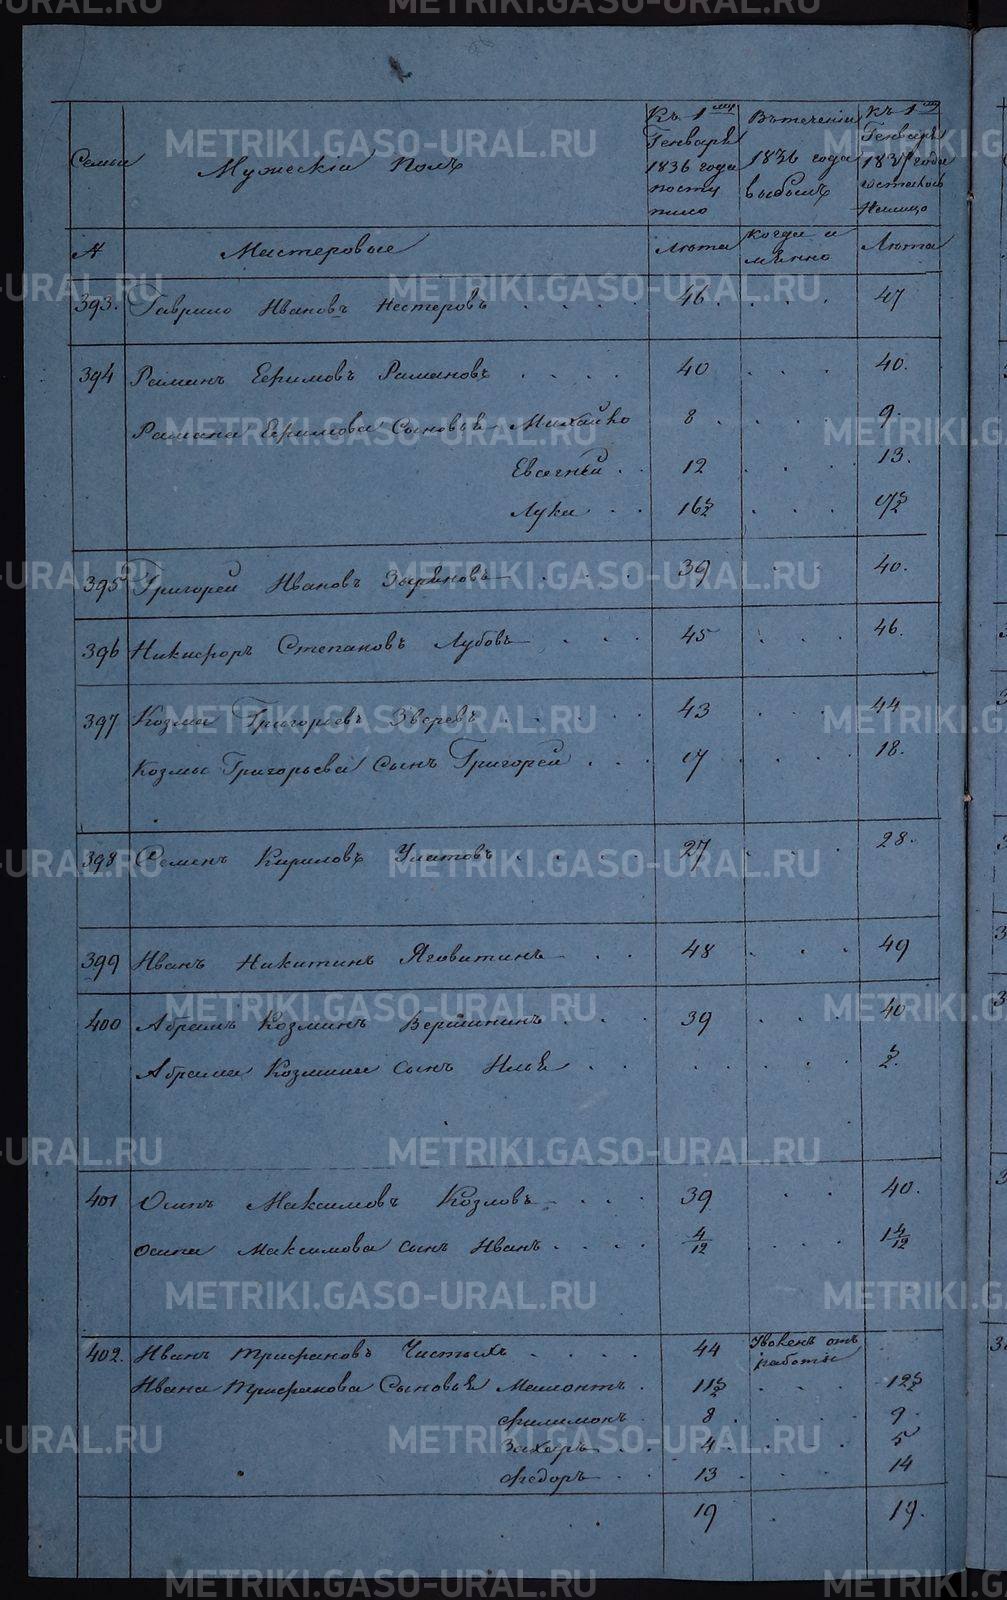 Семьи
Мужескiй Полъ
Къ 1му Генваря 1836 года посту пило
Втеченiи 1836 года выбылъ
къ 1му Генваря 1837 года осталось Налицо
№
Мастеровые
Лѣта
когда и имянно
Лѣта
393. Гаврило Ивановъ Нестеровъ . . . . 46 . . . . 47
394 Раманъ Ефимовъ Рамановъ . . . . 40 . . . 40.
Рамана Ефимова Сыновья Михайло 8 . . . . 9.
Евгенiй . . 12 . . . 13.
Лука . . . 16½ . . . 17½
395 Григорей Ивановъ Зыряновъ . . . 39 . . . 40.
396 Никифоръ Степановъ Лубовъ . . . 45 . . . 46.
397 Козма Григорьевъ Зверевъ . . . . . 43 . . . 44
Козмы Григорьева Сынъ Григорей . . . 17 . . . . 18.
398 Семенъ Кириловъ Улатовъ . . . . 27 . . . . 28.
399 Иванъ Никитинъ Яговитинъ . . 48 . . . 49
400 Абрамъ Козминъ Вершининъ . . . 39 . . . . 40
Абрама Козмина сынъ Илья . . . . . . . ½.
401 Осипъ Максимовъ Козловъ . . . 39 . . . 40.
Осипа Максимова сынъ Иванъ . . . . 4/12 . . . . 1 4/12
402. Иванъ Трифановъ Чистыхъ . . . . 44 Уволенъ отъ работы .
Ивана Трифанова Сыновья Мамонтъ . 11½ . . . 12½
Филимонъ . 8 . . . 9.
Захаръ . . 4 . . . 5
Федоръ . . 13 . . . 14
19 19.
METRIKI.GASO-URAL.RU